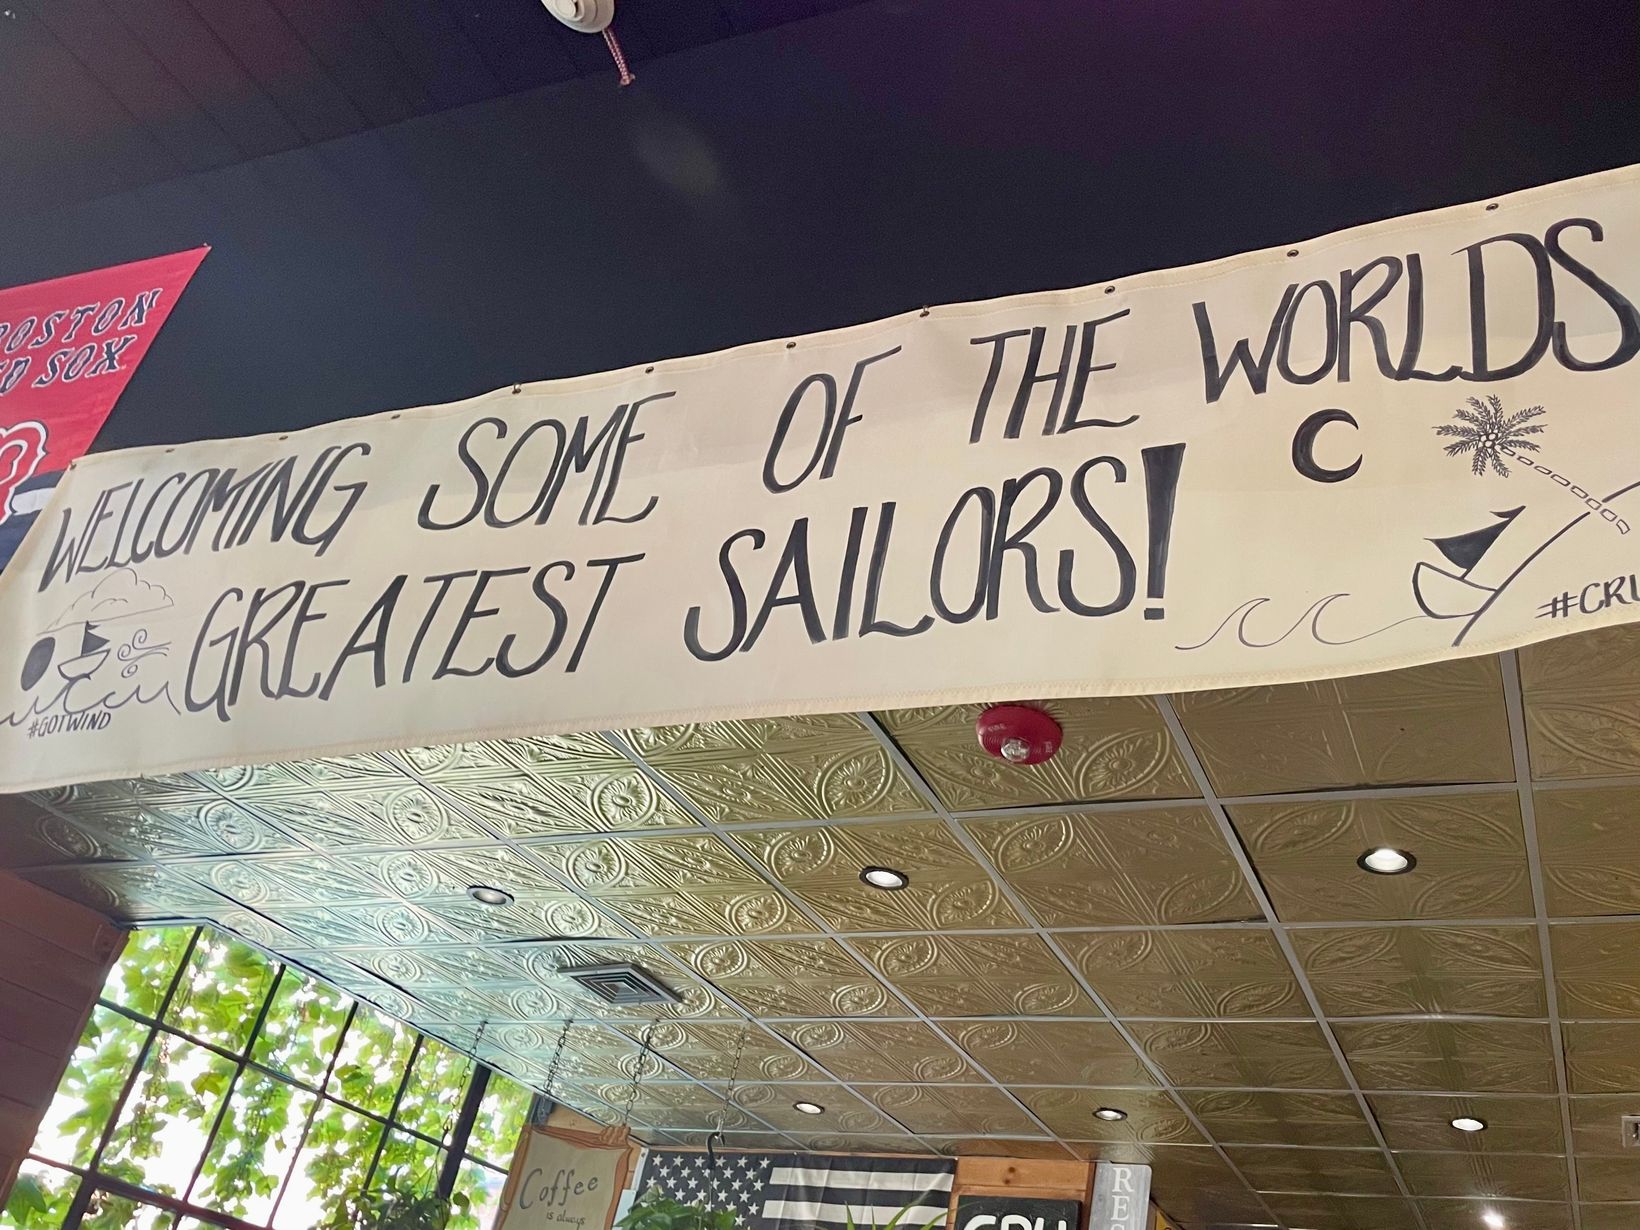 BOSTON
RED SOX
WELCOMING SOME OF THE WORLDS
GREATEST SAILORS!
#GOTWIND
#CRU
Coffee
is always
CRU
RES